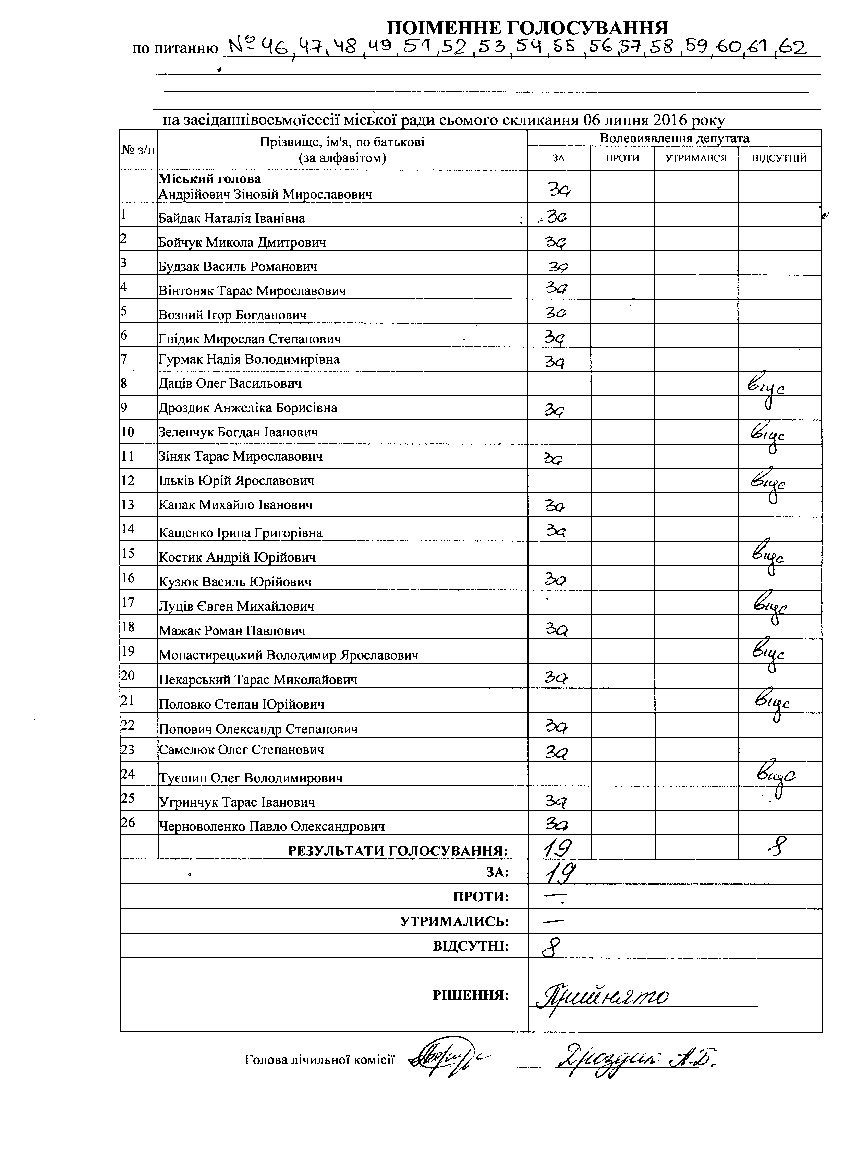 ПОІМЕННЕ ГОЛОСУВАННЯ
по питанню № 46, 47, 48, 49, 51, 52, 53, 54, 55, 56, 57, 58, 59, 60, 61, 62
на засіданнівосьмоїсесії міської ради сьомого скликання 06 липня 2016 року
№ з/п Прізвище, ім'я, по батькові (за алфавітом) Волевиявлення депутата
ЗА ПРОТИ УТРИМАВСЯ ВІДСУТНІЙ
Міський голова
Андрійович Зіновій Мирославович за
1 Байдак Наталія Іванівна за
2 Бойчук Микола Дмитрович за
3 Будзак Василь Романович за
4 Вінтоняк Тарас Мирославович за
5 Возний Ігор Богданович за
6 Гнідик Мирослав Степанович за
7 Гурмак Надія Володимирівна за
8 Даців Олег Васильович відс
9 Дроздик Анжеліка Борисівна за
10 Зеленчук Богдан Іванович відс
11 Зіняк Тарас Мирославович за
12 Ільків Юрій Ярославович відс
13 Капак Михайло Іванович за
14 Кащенко Ірина Григорівна за
15 Костик Андрій Юрійович відс
16 Кузюк Василь Юрійович за
17 Луців Євген Михайлович відс
18 Мажак Роман Павлович за
19 Монастирецький Володимир Ярославович відс
20 Пекарський Тарас Миколайович за
21 Половко Степан Юрійович відс
22 Попович Олександр Степанович за
23 Самелюк Олег Степанович за
24 Олег Володимирович відс
25 Угринчук Тарас Іванович за
26 Черноволенко Павло Олександрович за
РЕЗУЛЬТАТИ ГОЛОСУВАННЯ: 19 8
ЗА: 19
ПРОТИ: —
УТРИМАЛИСЬ: —
ВІДСУТНІ: 8
РІШЕННЯ: Прийнято
Голова лічильної комісії Дроздик А.Б.